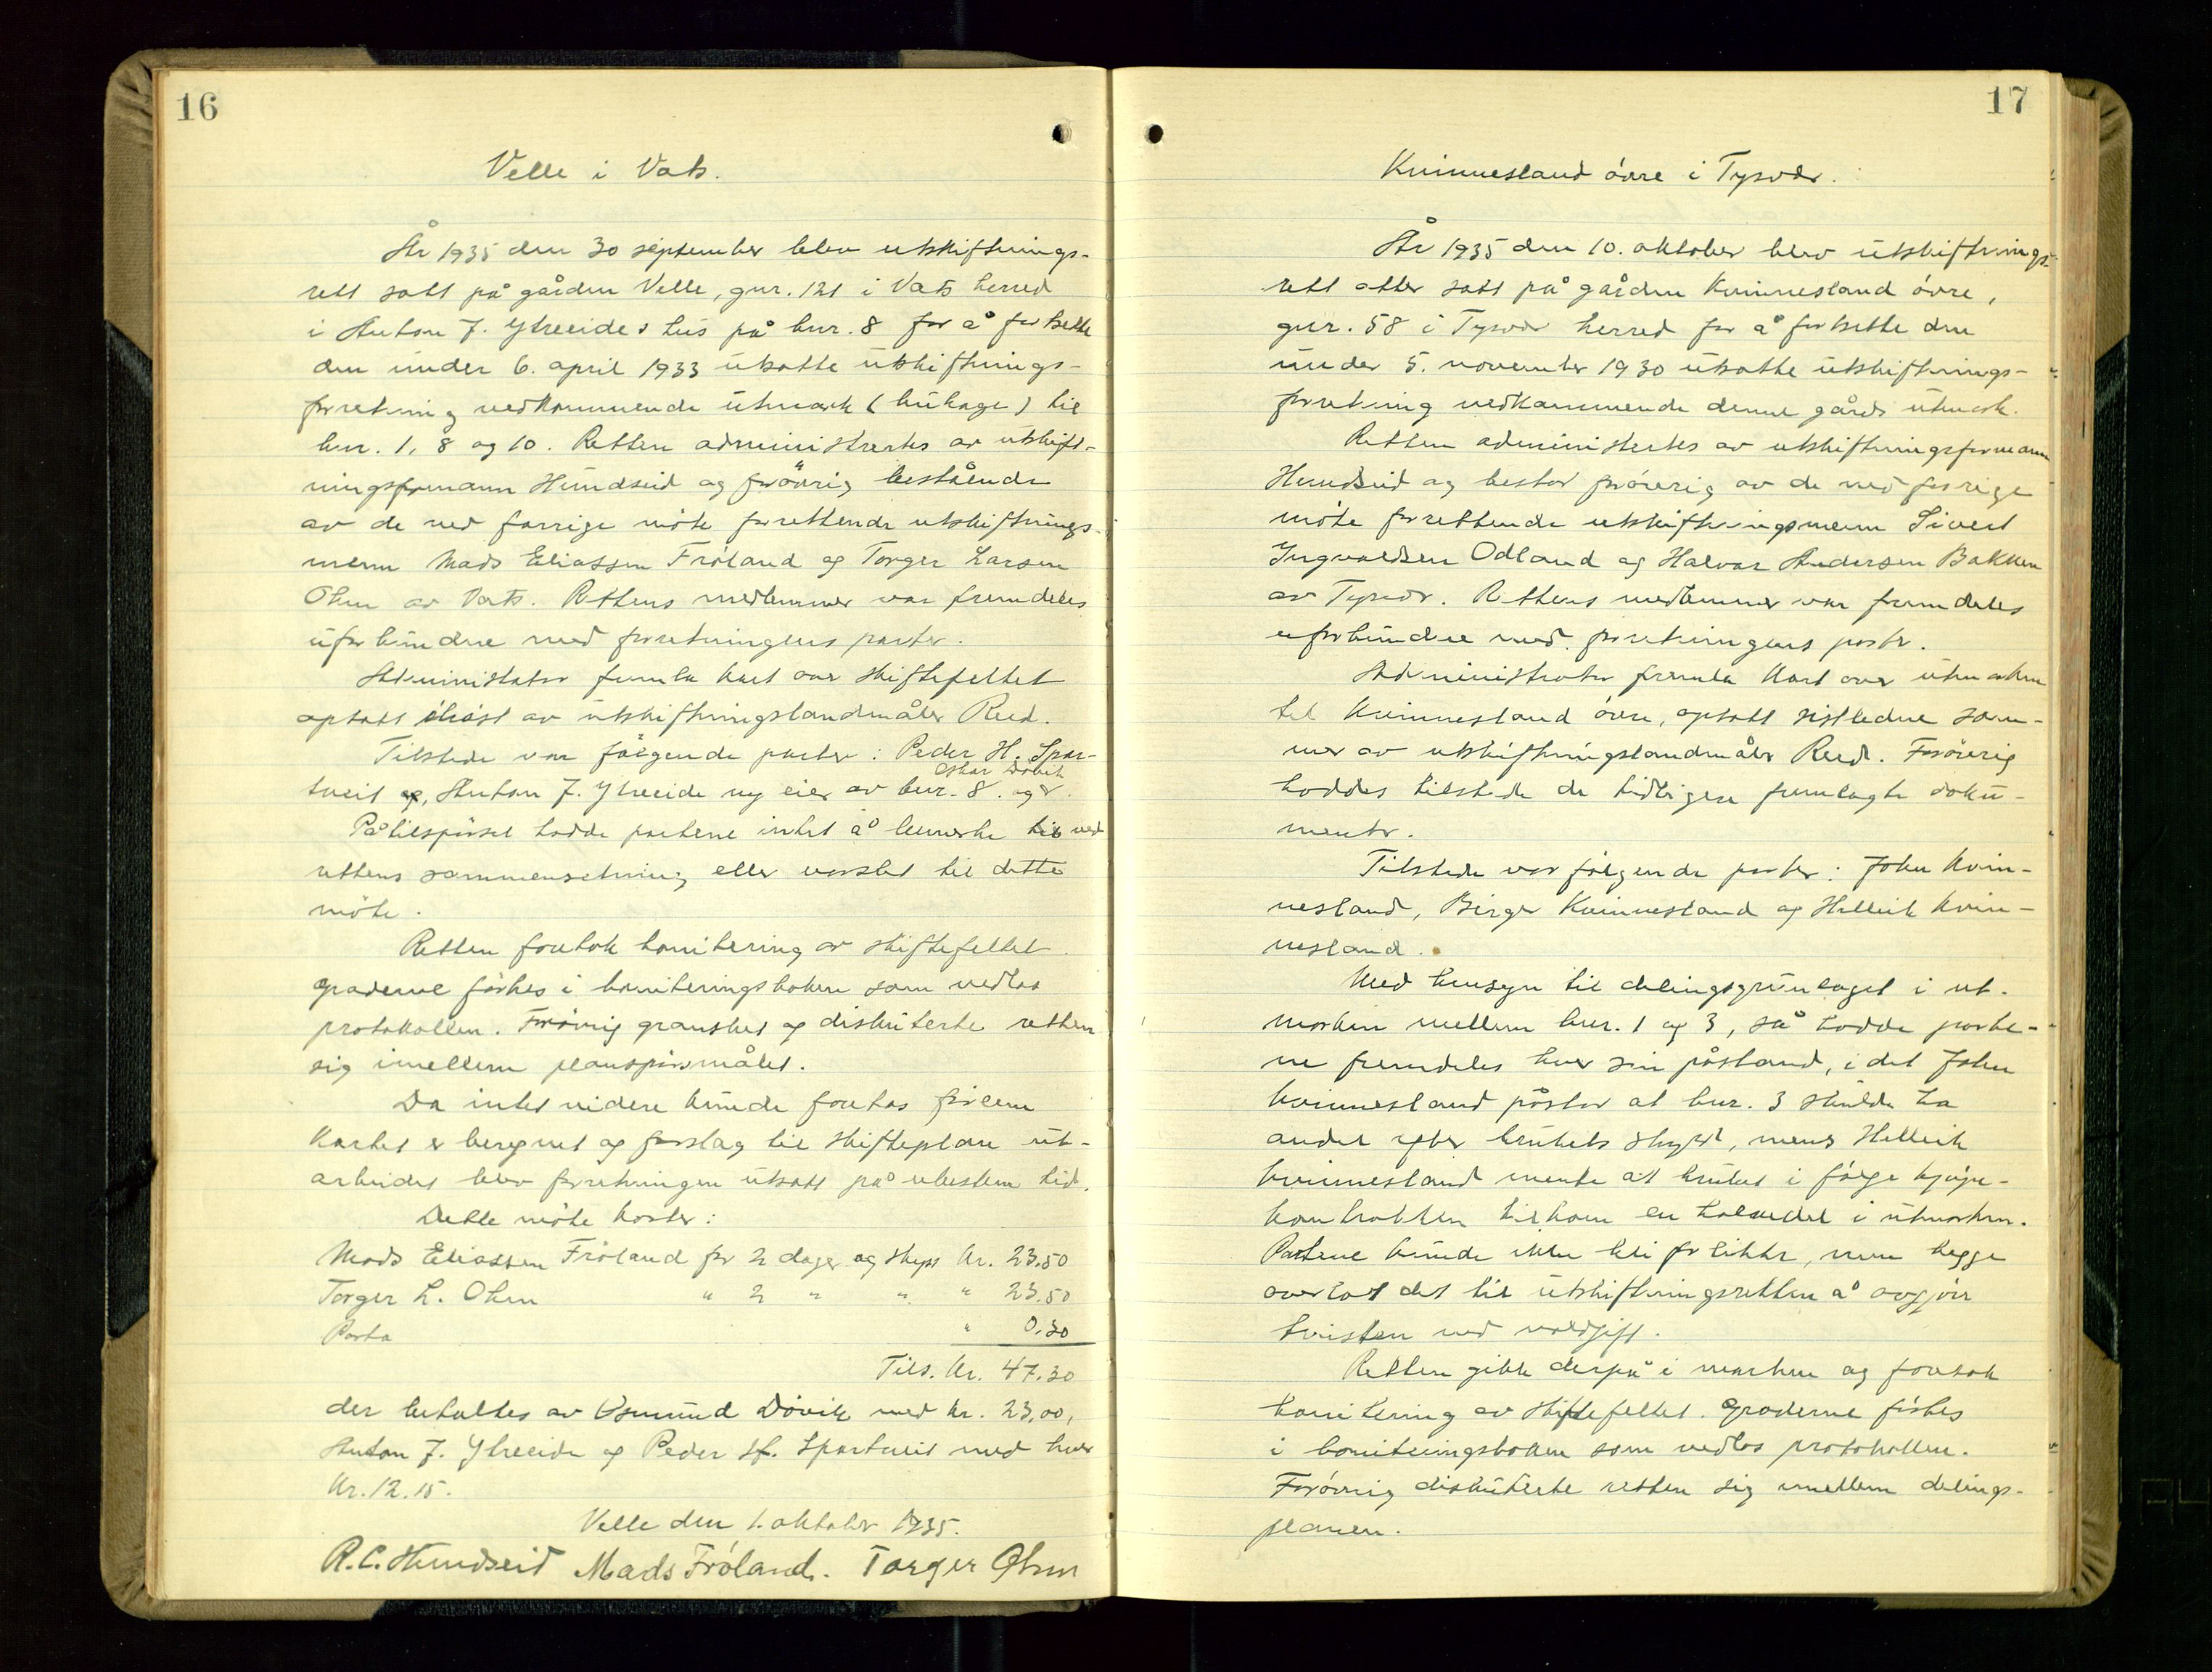 16
Velle i Vats.
År 1935 den 30 september blev utskiftnings-
rett satt på gården Velle, gnr. 121 i Vats herred
i Anton J. Ytreeides hus på bnr. 8 for å fortsette
den under 6. april 1933 utsatte utskiftnings-
forretning vedkommende utmark (buhage) til
bnr. 1, 8 og 10. Retten administrertes av utskift-
ningsformann Hundseid og forøvrig bestående
av de ved forrige møte forrettende utskiftnings-
menn Mads Eliassen Frøland og Torger Larsen
Ohm av Vats. Rettens medlemmer var fremdeles
uforbundne med forretningens parter.
Administrator fremla kart over skiftefeltet
optatt ihøst av utskiftningslandmåler Reed.
Tilstede var følgende parter: Peder H. Spor-
Oskar Døvik
tveit og, Anton J. Ytreeide ny eier av bnr. 8. og
På tilspørsel hadde partene intet å bemerke til ved
rettens sammensetning eller varslet til dette
møte.
Retten foretok bonitering av skiftefeltet.
Graderne førtes i boniteringsboken som vedlas
protokollen. Forøvrig gransket og diskuterte retten
sig imellem planspørsmålet.
Da intet videre kunde foretas førenn
kartet er beregnet og forslag til skifteplan ut-
arbeidet blev forretningen utsatt på ubestemt tid.
Dette møte koster:
Mads Eliassen Frøland for 2 dager og skyss kr. 23.50
Torger L. Ohm " 2 " " " 23.50
Porto " 0.30
Tils. kr. 47.30
der betaltes av Osmund Døvik med kr. 23,00,
Anton J. Ytreeide og Peder H. Sportveit med hver
kr. 12.15.
Velle den 1. oktober 1935.
R.C. Hundseid Mads Frøland. Torger Ohm
17
Kvinnesland øvre i Tysvær.
År 1935 den 10. oktober blev utskiftnings-
rett atter satt på gården Kvinnesland øvre,
gnr. 58 i Tysvær herred for å fortsette den
under 5. november 1930 utsatte utskiftnings-
forretning vedkommende denne gårds utmark.
Retten administertes av utskiftningsformann
Hundseid og bestod forøvrig av de ved forrige
møte forrettende utskiftningsmenn Sivert
Ingvaldsen Odland og Halvor Andersen Bakken
av Tysvær. Rettens medlemmer var fremdeles
uforbundne med forretningens parter.
Administrator fremla kart over utmarken
til Kvinnesland øvre, optatt sistledne som-
mer av utskiftningslandmåler Reed. Forøvrig
haddes tilstede de tidligere fremlagte doku-
menter.
Tilstede var følgende parter: John Kvin-
nesland, Birger Kvinnesland og Helleik Kvin-
nesland.
Med hensyn til delingsgrunlaget i ut-
marken mellem bnr. 1 og 3, så hadde parte-
ne fremdeles hver sin påstand, i det John
Kvinnesland påstod at bnr. 3 skulde ha
andel efter brukets skyld, mens Helleik
Kvinnesland mente at bruket i følge kjøpe-
kontrakten tilkom en halvedel i utmarken.
Partene kunde ikke bli forlikte, men begge
overlot det til utskiftningsretten å avgjøre
tvisten ved voldgift.
Retten gikk derpå i marken og foretok
bonitering av skiftefeltet. Graderne førtes
i boniteringsboken som vedlas protokollen.
Forøvrig diskuterte retten sig imellem delings-
planen.